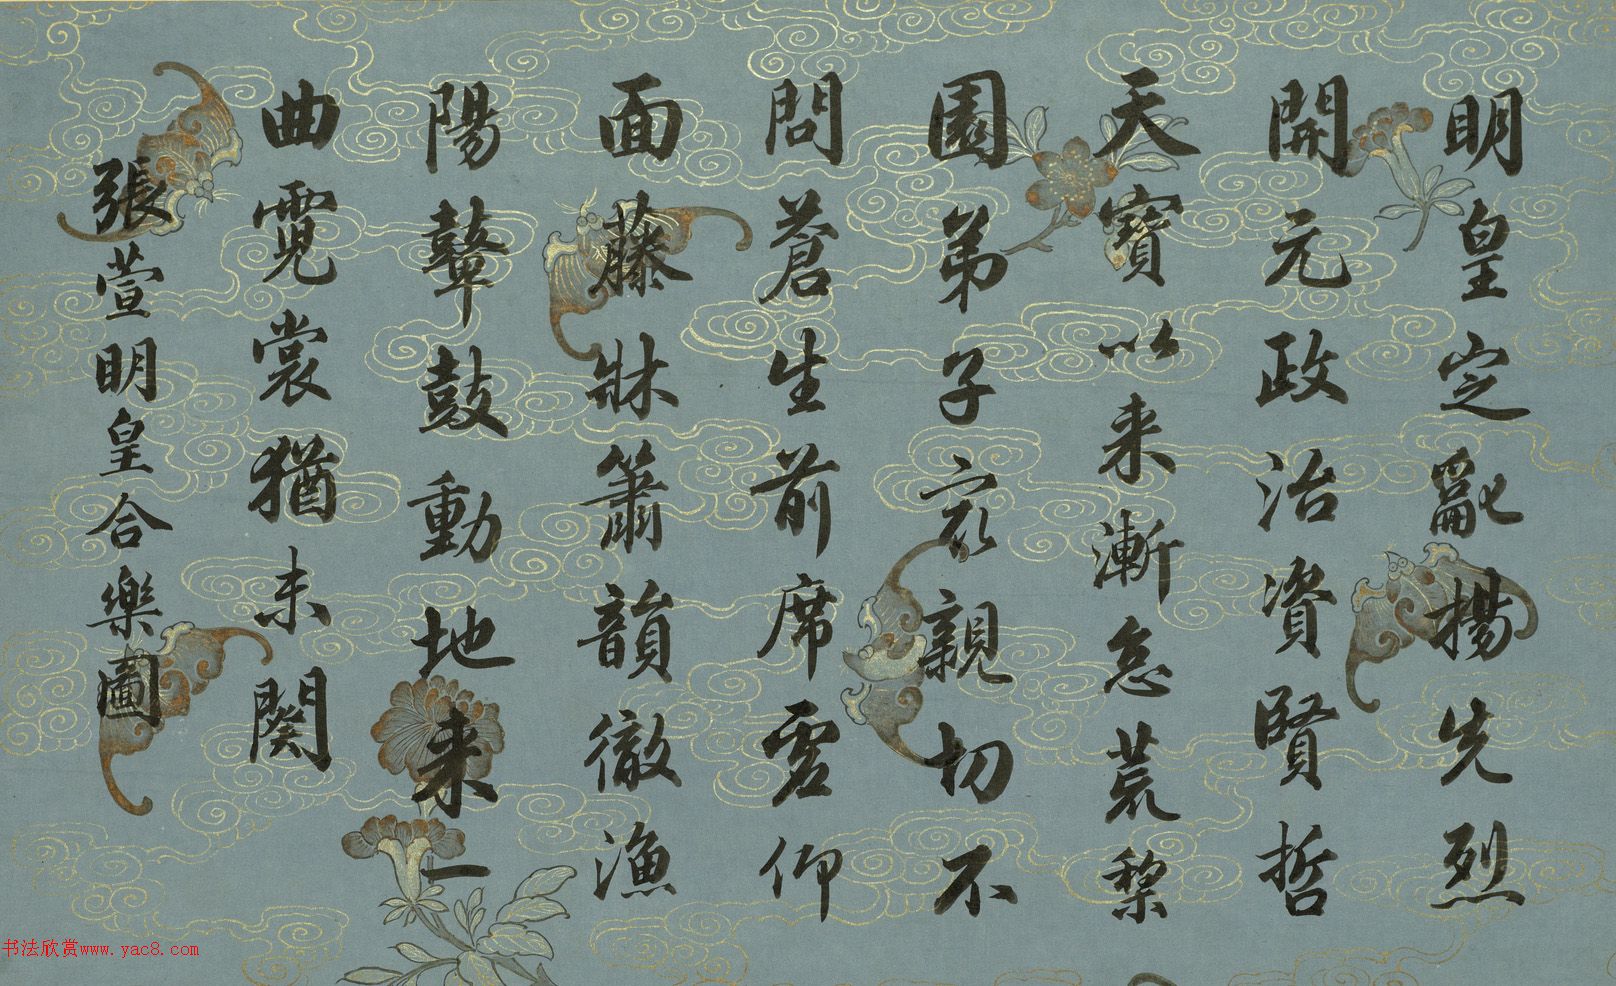 明皇定亂揚先烈
開元政治資賢哲
天寶以来漸怠荒棃
園弟子最親切不
問蒼生前席虛仰
面藤牀簫韻徹漁
陽鼙鼓動地来一
曲霓裳猶未闋
張萱明皇合樂圖
书法欣赏www.yac8.com